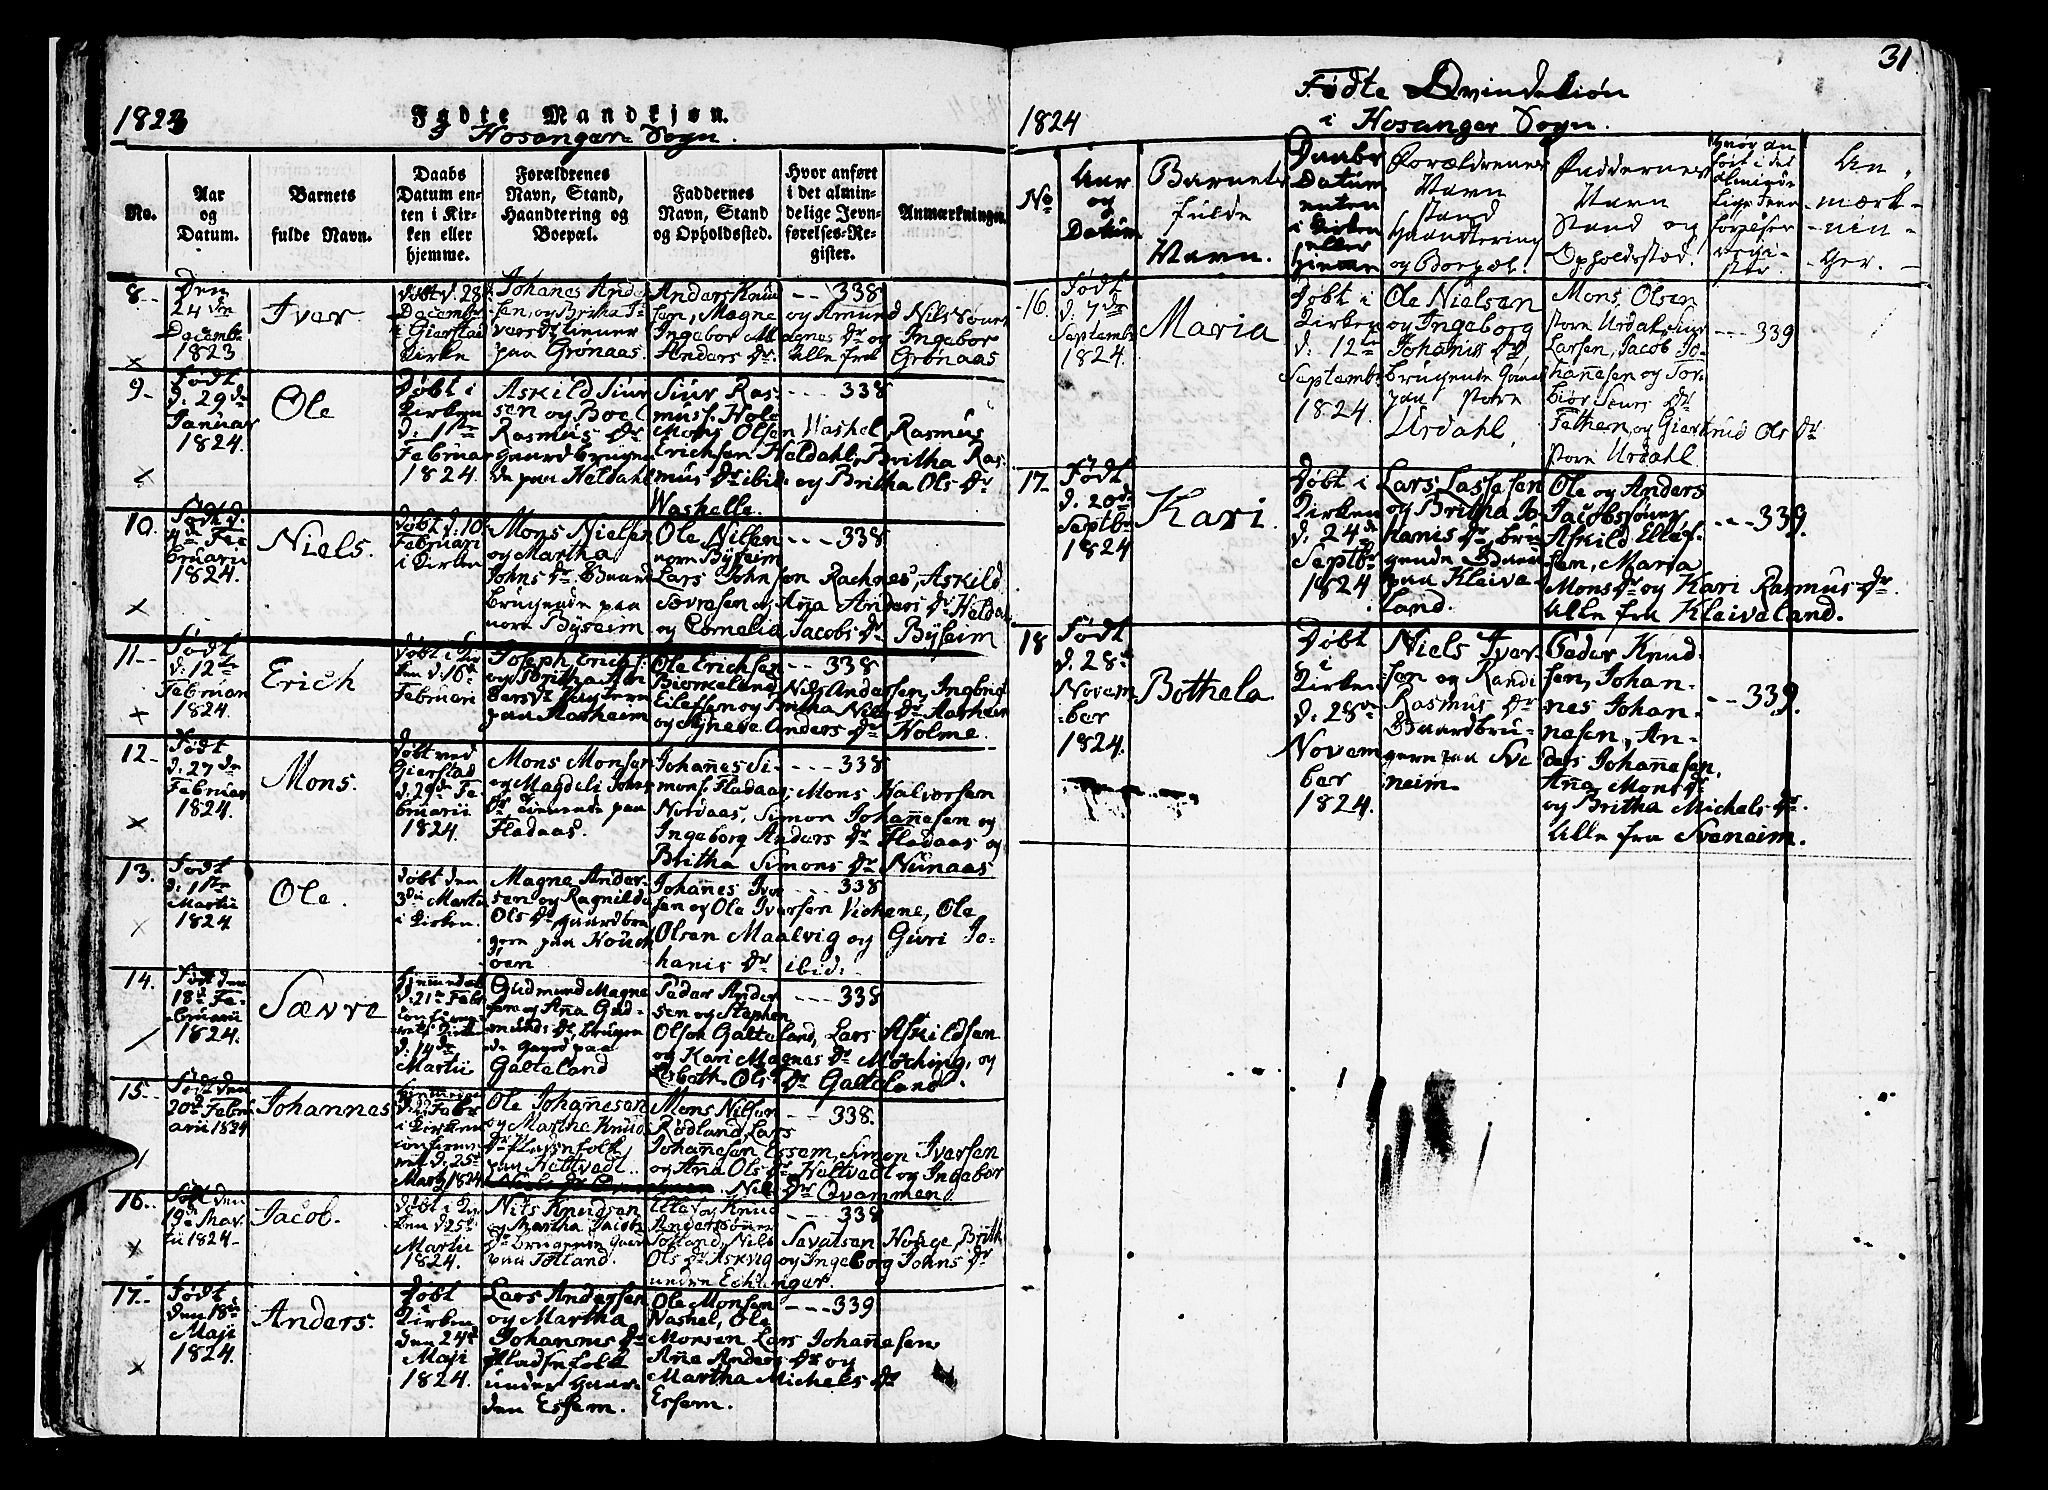 1823
Fødte Mandkjøn.
I Hosanger Sogn.
No.
Aar
og
Datum.
Barnets
fulde Navn.
Daabs
Datum en-
ten i Kir-
ken eller
hjemme.
Forældrenes
Navn, Stand,
Haandtering og
Boepæl.
Faddernes
Navn, Stand
og Opholdssted.
Hvor anført
i det almin-
delige Jevn-
førelses-Re-
gister.
Anmærkninger.
8-
Den
24de
Decembr
1823
Iver.
døbt d. 28
Decembr
i Gierstad
Kirke
Johanes Ander
sen, og Britha I-
vers dr tiener
paa Grønaas
Anders Knud --- 338
sen, Magne og Amund Nilssøner
Ingebor Magnes dr og Ingebor
Anders dr. Alle fra Grønaas
9-
Født
d. 29de
Januar
1824.
Ole
Døbt i
Kirken
d. 1ste
Februar
1824.
Askild Siur
sen og Boel
Rasmus dr
Gaardbrugen
de paa Heldahl
Siur Ras- --- 338
mus. Hole
Mons Olsen Washel, Rasmus
Erichsen Heldahl, Britha Ras-
mus dr ibid: og Britha Ols dr
Washelle.
10.
Født d.
Fe
bruarii
1824.
Niels.
døbt d. 10
Februari
i Kirken
Mons Nielsen
og Martha
Johns dr. Gaard
brugende paa
nore Byseim
Ole Nilsen --- 338
nore Byseim
Lars Johnsen Rachnes, Askild
Sævresen og Aña Anders dr Heldal
og Cornelia Jacobs dr Byseim
11-
Født
d. 12te
Februari
1824.
Erich
døbt i Kir
ken d. 16
Februari
Joseph Erichs.
og Britha An
ders dr
paa Aarheim
Ole Erichsen --- 338
Biørkeland, Nils Andersen,
Eilefsen og Britha Nils dr Aarheim
og Agneve Anders dr Holme.
12-
Født
d. 27de
Februar
1824.
Mons.
døbt ved
Gierstad
d. 29de Fe-
bruarii
1824.
Mons Monsen
og Magdeli Johns
dr tienende paa
Fladaas.
Johañes Si- --- 338
mons. Fladaas, Mons Halvorsen
Nordaas, Simon Johañesen og
Ingeborg Anders dr Fladaas og
Britha Simons dr Nunaas
13.
Født
d. 1ste
Martii
1824.
Ole.
døbt den
3die Martii
i Kirken.
Magne Ander-
sen og Ragnilde
Ols dr. gaardbru
gere paa Houch
øen
Johanes Iver --- 338
sen og Ole Iversen Vichene, Ole
Olsen Maalvig og Guri Jo-
hanis dr ibid:
14.
Født den
18de Fe-
bruarii
1824.
Sævre
hjemmedøbt
d. 21de Febr
confirme-
ret i Kirken
d. 14de
Martii
Gudmund Magne
sen og Aña Gud
munds dr. brugen
de Gaard paa
Galteland
Peder Ander --- 338
sen og Stephen
Olson Galteland, Lars Askildsen
og Kari Magnes dr Møching, og
Lisbeth Ols dr Galteland.
15.
Født den
20de Febru
arii 1824
Johannes
Febr
i Kirken
confirme
ret d. 25de
Marty 1824
Ole Johañesen
og Martha Knuds
dr. Pladsfolk
paa Heltvedt.
Mons Nilsen --- 338.
Rødland, Lars
Johañesen Essem, Simon Iversen
og Ana Ols dr Heltvedt og Ingebor
Nils dr Qvammen
16.
Født den
19de Mar
tii 1824
Jacob.
døbt i Kir
ken d. 25de
Martii
1824.
Nils Knudsen
og Martha Jacobs
dr brugende Gaard
paa Totland.
Elle og Knud --- 338
Anderssøner
Totland, Nils Savalsen Houge, Brith
Ols dr Askvig og Ingeborg Johns dr
undre Echanger.
17.
Født
den 18de
Maji
1824.
Anders.
Døbt
i
Kirken
den 24de
Maji
1824.
Lars Andersen
og Martha
Johannes dr
Pladsefolk
under Gaar-
den Essem.
Ole Monsen --- 339
Nashel, Ole
Monsen Lars Johañesen
Aña Anders dr og
Martha Michels dr
Essem.
31
1824
Fødte Qvindekiøn
i Hosanger Sogn.
No
Aar
og
Datum
Barnets
fulde
Navn.
Daabs
Datum
enten
i Kirken
eller
hjemme
Forældrenes
Navn
stand
Haandtering
og Boepæl.
Faddernes
Navn
Stand og
Opholdssted.
Hvor an
ført i det
alminde
lige Jevn
førelses
regi-
ster.
An-
mærk-
nin-
ger.
16.
Født
d. 7de
Septembr
1824.
Maria
Døbt i
Kirken
d. 12te
Septembr
1824.
Ole Nielsen
og Ingeborg
Johanis dr,
brugende Gaard
paa store
Urdahl.
Mons Olsen
store Urdal, Siur
Larsen, Jacob Jo-
hañesen og Tor-
biør Siurs dr
Fethen, og Giertrud Ols dr
store Urdahl.
--- 339
17-
Født
d. 20de
Septbr
1824
Kari.
Døbt i
Kirken
d. 24de
Septbr
1824
Lars Lassesen
og Britha Jo
hanis dr, bru
gende Gaard
paa Kleive-
land.
Ole og Anders
Jacobssøner
Askild Ellef-
sen, Maria
Mons dr og Kari Rasmus dr.
Alle fra Kleiveland.
--- 339.
18
Født
d. 28de
Novem
ber
1824.
Bothela
Døbt
i
Kirken
d. 28de
Novem
ber
1824.
Niels Iver-
sen og Randi
Rasmus dr
Gaardbru-
gere paa Sve
neim.
Peder Knud-
sen, Johan-
nes Johan-
nesen, An-
ders Johañesen,
Aña Mons dr
og Britha Michels dr.
Alle fra Sveneim.
--- 339.